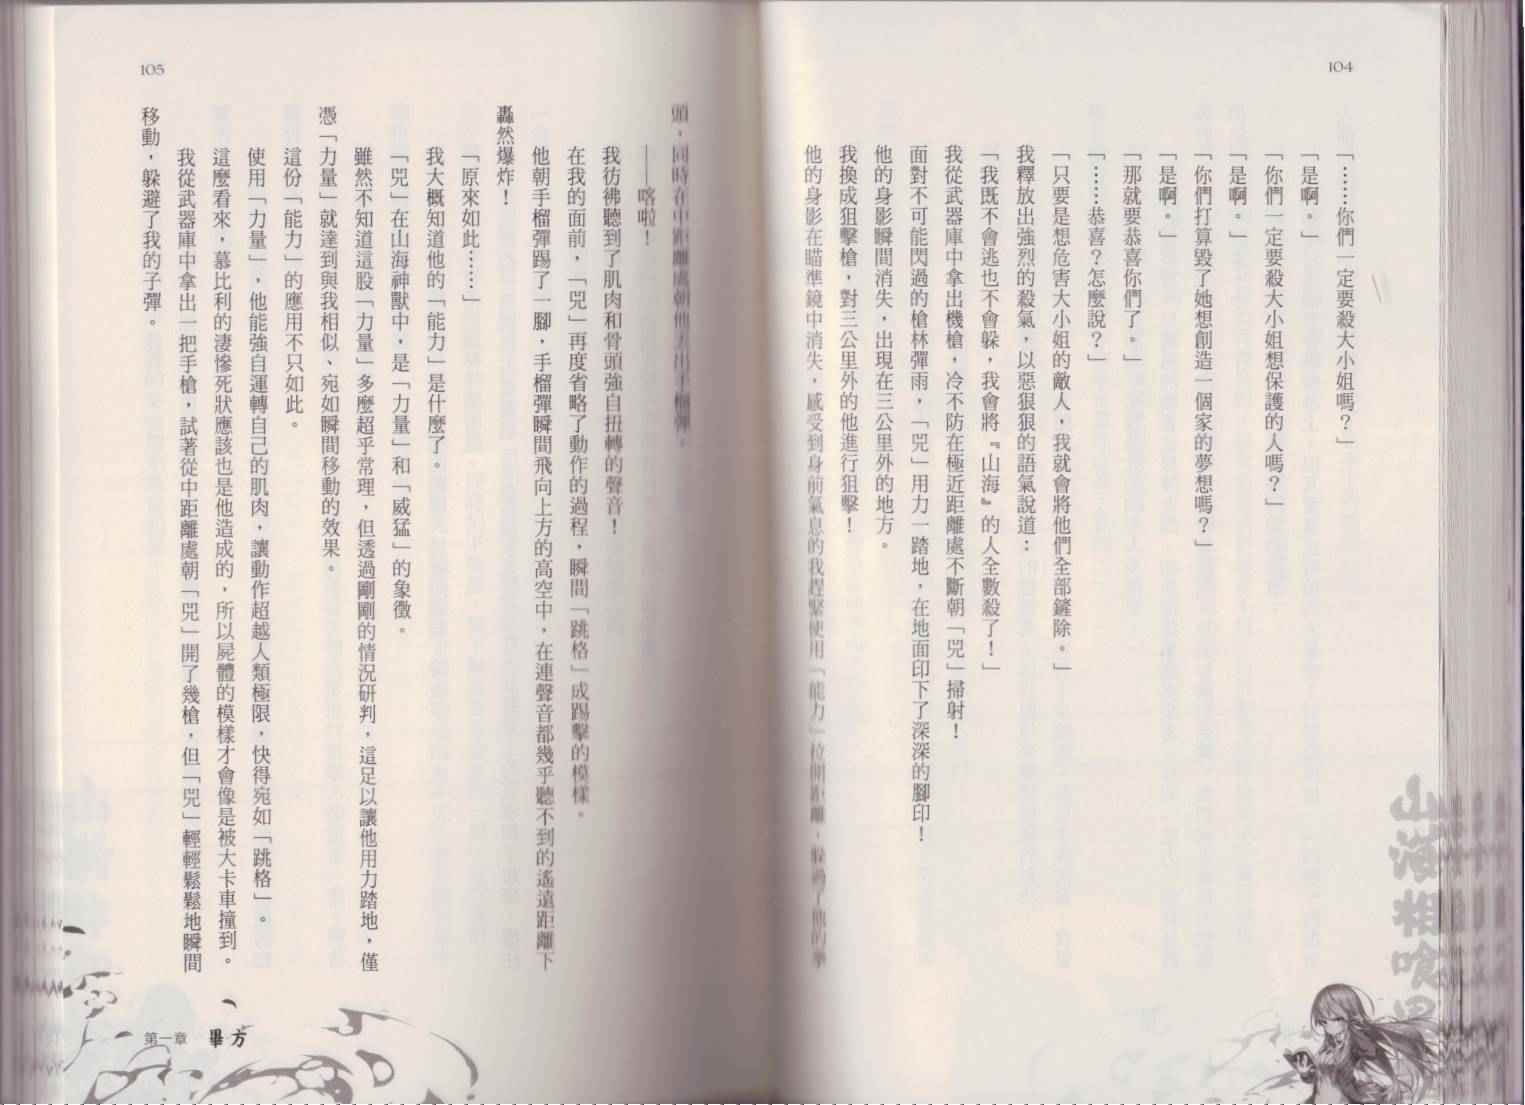 104
「……你們一定要殺大小姐嗎？」
「是啊。」
「你們一定要殺大小姐想保護的人嗎？」
「是啊。」
「你們打算毀了她想創造一個家的夢想嗎？」
「是啊。」
「那就要恭喜你們了。」
「……恭喜？怎麼說？」
「只要是想危害大小姐的敵人，我就會將他們全部鏟除。」
我釋放出強烈的殺氣，以惡狠狠的語氣說道：
「我既不會逃也不會躲，我會將『山海』的人全數殺了！」
我從武器庫中拿出機槍，冷不防在極近距離處不斷朝「兕」掃射！
面對不可能閃過的槍林彈雨，「兕」用力一踏地，在地面印下了深深的腳印！
他的身影瞬間消失，出現在三公里外的地方。
我換成狙擊槍，對三公里外的他進行狙擊！
他的身影在瞄準鏡中消失，感受到身前氣息的我趕緊使用「能力」拉開距離，躲過了他的拳
山海相喰異
105
頭，同時在中距離處朝他丟出手榴彈。
——喀啦！
我彷彿聽到了肌肉和骨頭強自扭轉的聲音！
在我的面前，「兕」再度省略了動作的過程，瞬間「跳格」成踢擊的模樣。
他朝手榴彈踢了一腳，手榴彈瞬間飛向上方的高空中，在連聲音都幾乎聽不到的遙遠距離下
轟然爆炸！
「原來如此……」
我大概知道他的「能力」是什麼了。
「兕」在山海神獸中，是「力量」和「威猛」的象徵。
雖然不知道這股「力量」多麼超乎常理，但透過剛剛的情況研判，這足以讓他用力踏地，僅
憑「力量」就達到與我相似、宛如瞬間移動的效果。
這份「能力」的應用不只如此。
使用「力量」，他能強自運轉自己的肌肉，讓動作超越人類極限，快得宛如「跳格」。
這麼看來，慕比利的淒慘死狀應該也是他造成的，所以屍體的模樣才會像是被大卡車撞到。
我從武器庫中拿出一把手槍，試著從中距離處朝「兕」開了幾槍，但「兕」輕輕鬆鬆地瞬間
移動，躲避了我的子彈。
第一章 畢方